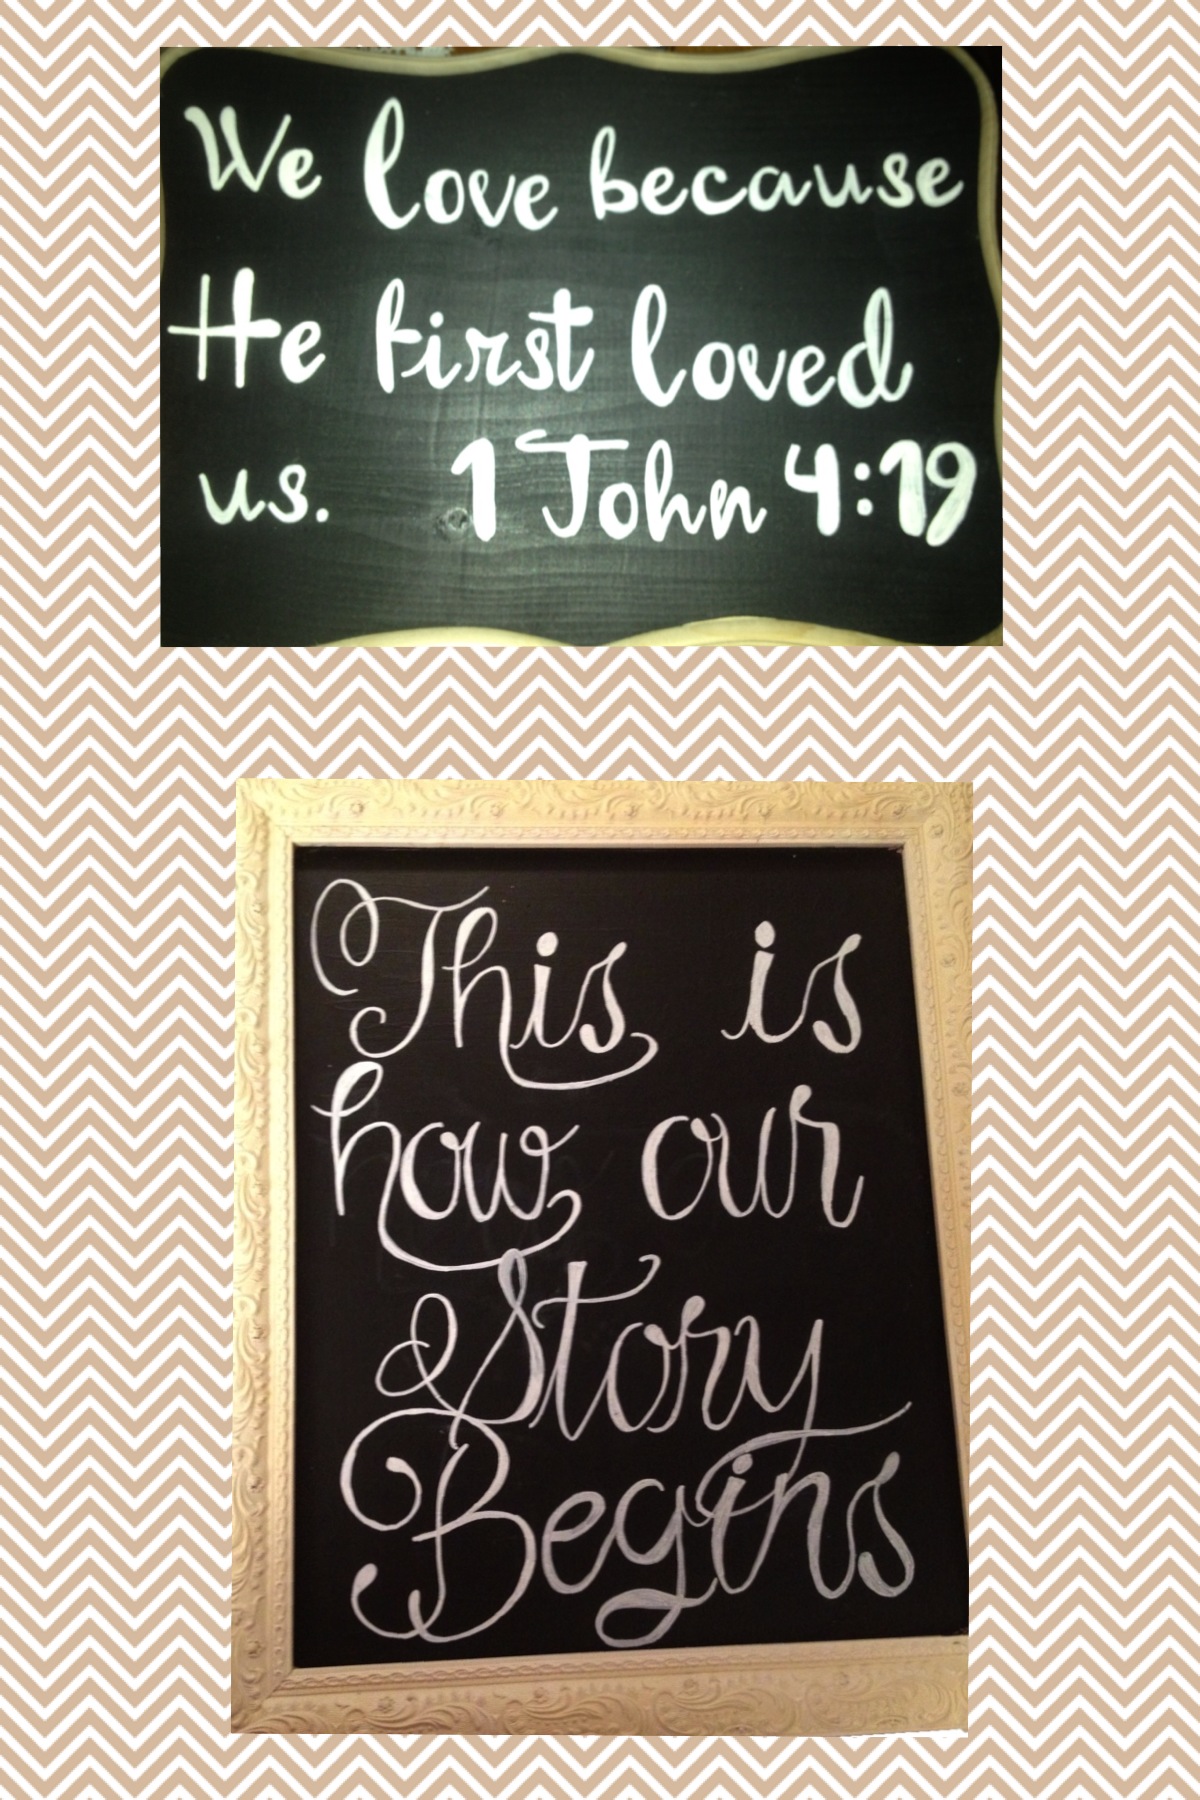 We love because
He first loved
us. 1 John 4:19
This is
how our
Story
Begins